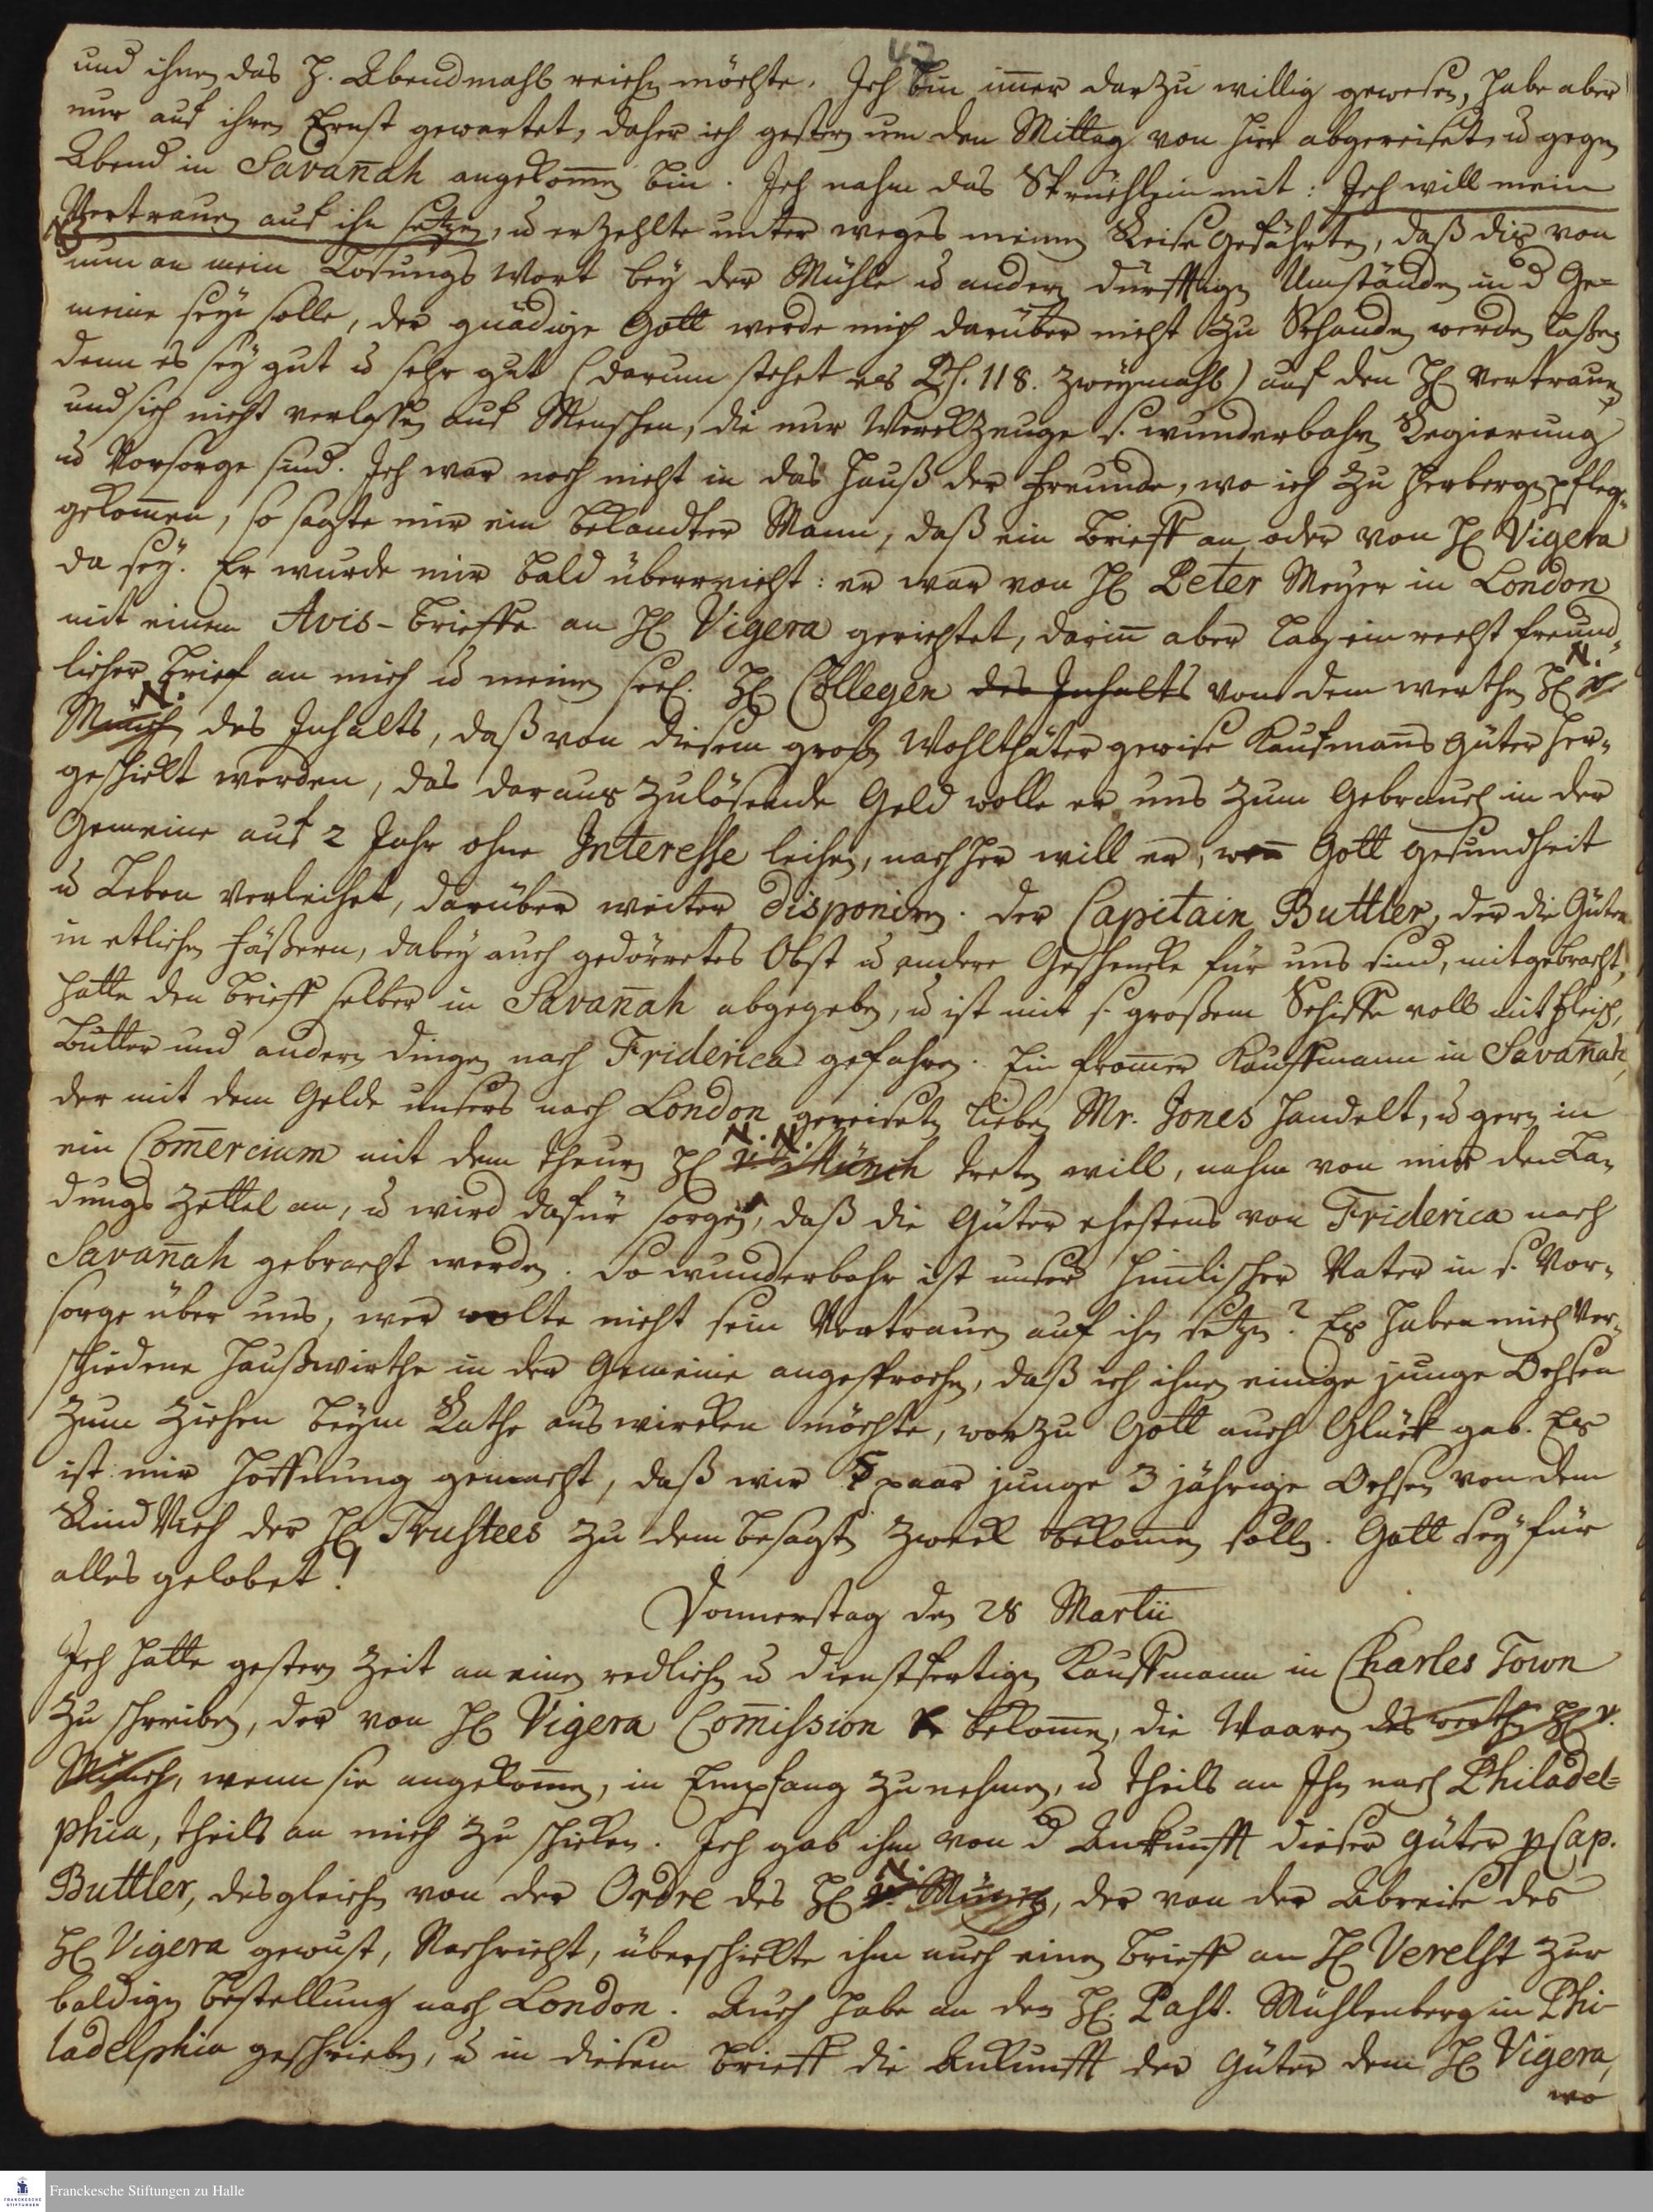 und ihnen das H. Abendmahl reichen möchte. Ich bin im̄er darzu willig gewesen, habe aber
nur auf ihren Ernst gewartet, daher ich gestern um den Mittag von hier abgereiset, u. gegen
Abend in Savan̄ah angekom̄en bin. Ich nahm das Sprüchlein mit: Ich will mein
Vertrauen auf ihn setzen, u. erzehlte unter weges meinen Reise Gefährten, daß dis von
nun an mein Losungs Wort bey der Mühle u. andern dürfftigen Umständen in d Ge=
meine seyn solle, der gnädige Gott werde mich darüber nicht zu Schanden werden laßen,
denn es sey gut u. sehr gut (darum stehet es Ps. 118. zweymahl) auf den H. vertrauen
und sich nicht verlassen auf Menschen, die nur Werckzeuge s. wunderbahren Regierung
u. Vorsorge sind. Ich war noch nicht in das Hauß der Freunde, wo ich zu Herbergen pflege,
gekom̄en, so sagte mir ein bekandter Mann, daß ein Brieff an oder von H. Vigera
da sey. Er wurde mir bald überreicht: er war von H. Peter Meyer in London
mit einem Avis-Brieffe an H. Vigera gerichtet, darin̄ aber lag ein recht freund=
licher Brief an mich u. meinen seel. H. Collegen des Inhalts von dem werthen H. v. N.
Münch N. des Inhalts, daß von diesem großen Wohlthäter gewise Kaufman̄s Güter her=
geschickt werden, das daraus zulösende Geld wolle er uns zum Gebrauch in der
Gemeine auf 2 Jahr ohne Interesse leihen, nachher will er, wen̄ Gott Gesundheit
u. Leben verleihet, darüber weiter disponiren. Der Capitain Buttler, der die Güter
in etlichen Fäßern, dabey auch gedörretes Obst u. andere Geschencke für uns sind, mitgebracht,
hatte den Brieff selber in Savan̄ah abgegeben, u. ist mit s. großem Schiffe voll mit Fleisch,
Butter und andern Dingen nach Friderica gefahren. Ein from̄er Kauffmann in Savan̄ah,
der mit dem Gelde unsers nach London gereiseten lieben Mr. Jones handelt, u. gern in
ein Com̄ercium mit dem theuren H. v. Münch N. N. treten will, nahm von mir den La=
dungs Zettel an, u. wird dafür sorgen, daß die Güter ehestens von Friderica nach
Savan̄ah gebracht werden. So wunderbahr ist unser him̄lischer Vater in s. Vor=
sorge über uns, wer wolte nicht sein Vertrauen auf ihn setzen? Es haben mich ver=
schiedene Haußwirthe in der Gemeine angesprochen, daß ich ihnen einige junge Ochsen
zum Ziehen beym Rathe auswircken möchte, worzu Gott auch Glück gab. Es
ist mir Hoffnung gemacht, daß wir 5 paar junge 3 jährige Ochsen von dem
Rind Vieh der H. Trustees zu dem besagten Zweck bekom̄en sollen. Gott sey für
alles gelobet!
Donnerstag den 28 Martii
Ich hatte gestern Zeit an einen redlichen u. dienstfertigen Kauffmann in Charles Town
zu schreiben, der von H. Vigera Com̄ission bekom̄en, die Waaren des werthen H. v.
Münch, wenn sie angekom̄en, in Empfang zu nehmen, u. theils an Ihn nach Philadel=
phia, theils an mich zu schicken. Ich gab ihm von d Ankunfft dieser Güter p Cap.
Buttler, desgleichen von der Ordre des H. v. Münch N., der von der Abreise des
H. Vigera gewust, Nachricht, überschickte ihm auch einen Brieff an H. Verelst zur
baldigen Bestellung nach London. Auch habe an den H. Past. Mühlenberg in Phi=
ladelphia geschrieben, u. in diesem Brieff die Ankunfft der Güter dem H. Vigera,
wo
Franckesche Stiftungen zu Halle